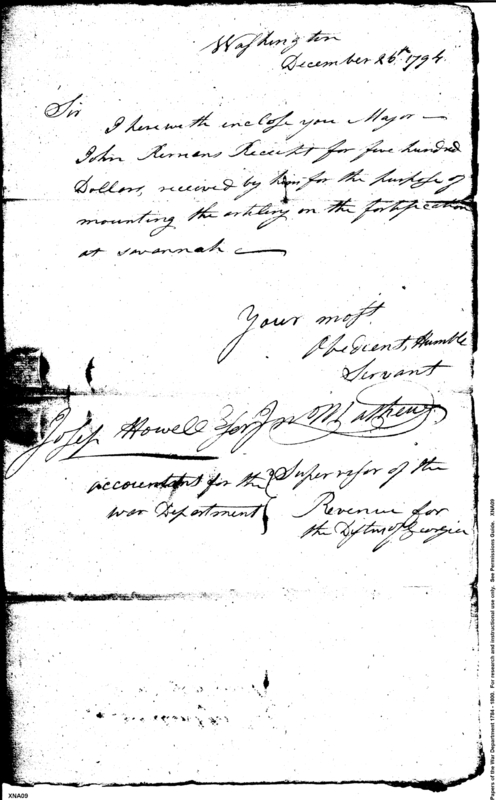 Washington
December 26th 1794.
Sir
I herewith inclose you Major
John Kernans Receipt for five hundred
Dollars, received by him for the purpose of
mounting the artilery on the fortification
at savannah
Your most
Obedient, Humble
Servant
Josep Howell Esqr Jn Mathews
accountant for the Supervisor of the
war Department Revenue for
the of Georgia
Papers of the War Department 1784 - 1800. For research and instructional use only. See Permissions Guide. XNA09
XNA09